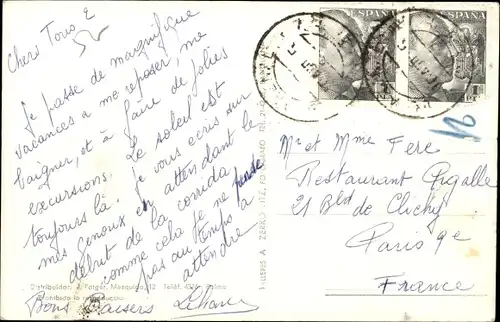 Chers Tous 2
Je passe de magnifique
vacances a me reposer, me
baigner, et à faire de jolies
excursions. Le soleil est
toujours là. Je vous écris sur
mes genoux en attendant le
début de la corrida
comme cela je ne perde
pas du temps a
attendre
Bons Baisers
ESPAÑA
ESPAÑA
TALLERES A. ZERKOWITZ, FOTOGRAFO
Mr et Mme Fere
Restaurant Pigalle
21 Bld de Clichy
Paris 9e
France
Distribuidor: J. Ferrer, Mesquida, 12 Teléf.
Prohibida la reproducción